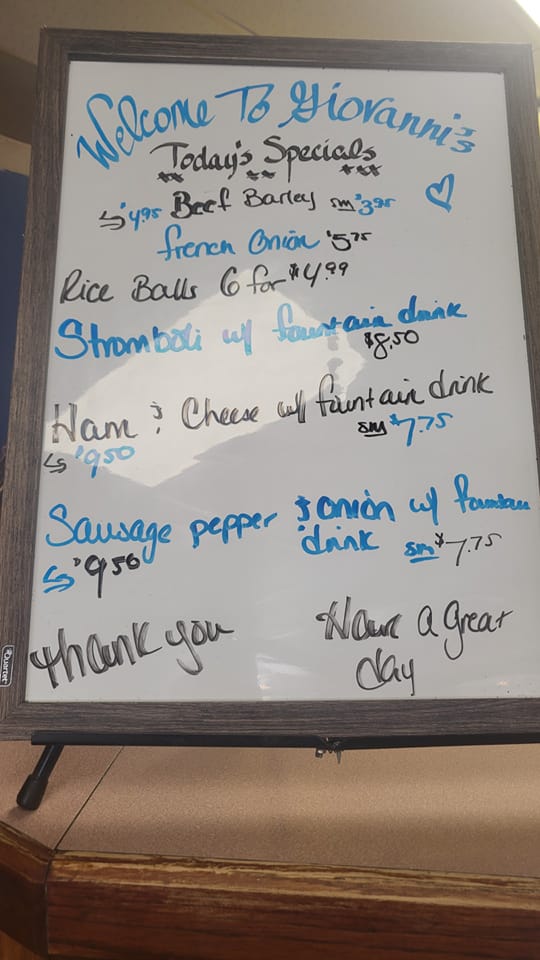 Welcome To Giovanni's
Today's Specials
*** ** ***
Lg $4.95 Beef Barley sm $3.95
french Onion $5.75
Rice Balls 6 for $4.99
Stromboli w/ fountain drink
$8.50
Ham & Cheese w/ fountain drink
Lg $9.50 sm $7.75
Sausage pepper & onion w/ fountain
drink sm $7.75
Lg $9.50
Thank you
Have a great
day
Quartet